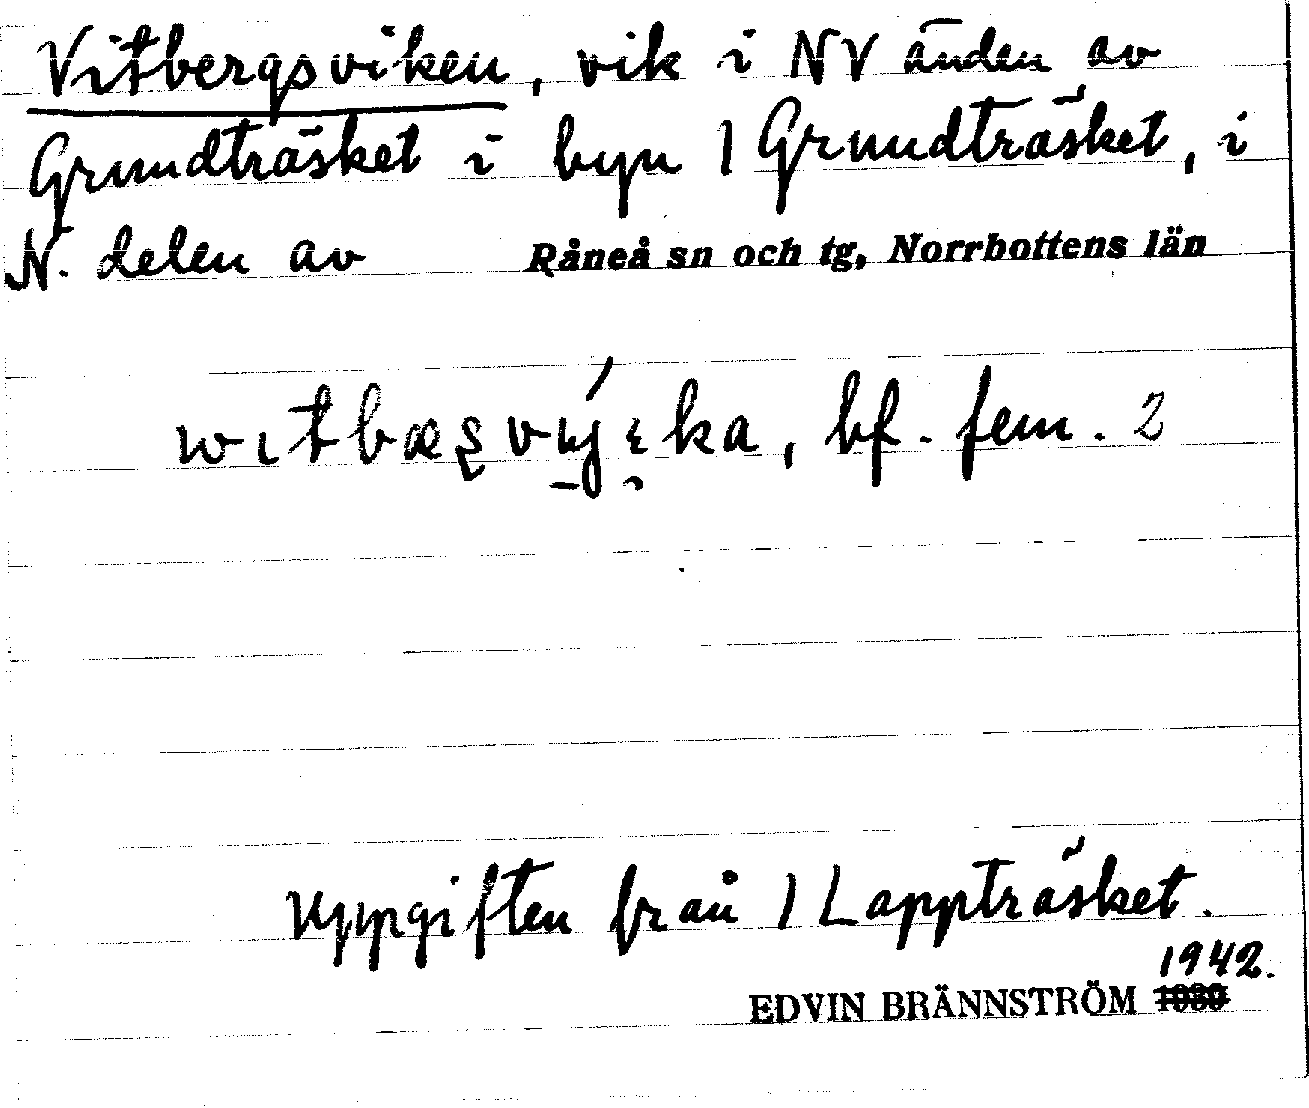 Vitbergsviken, vik i NV änden av
Grundträsket i byn 1 Grundträsket, i
N. delen av Råneå sn och tg, Norrbottens län
bf. fem. 2
Uppgiften från 1 Lappträsket.
1942.
EDVIN BRÄNNSTRÖM 1930